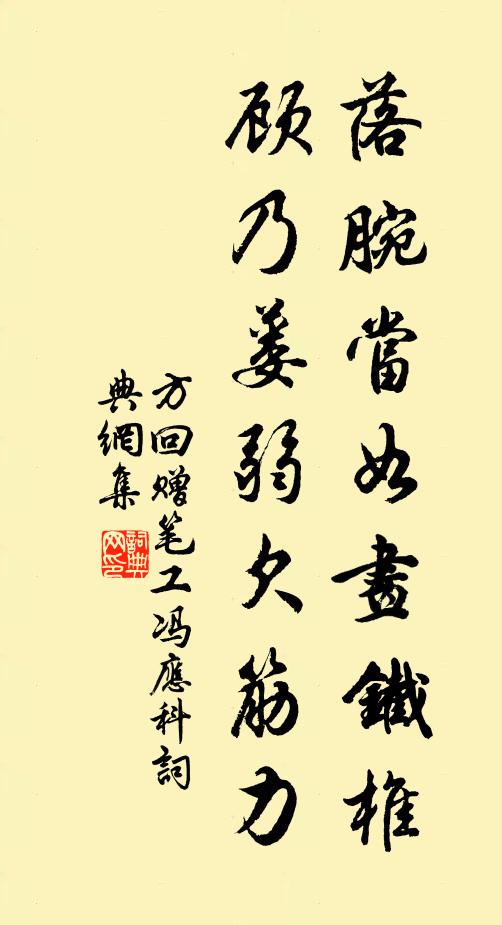 落腕當如畫鐵椎
顾乃萎弱欠筋力
方回赠笔工冯應科詞
典網集
詞典网印